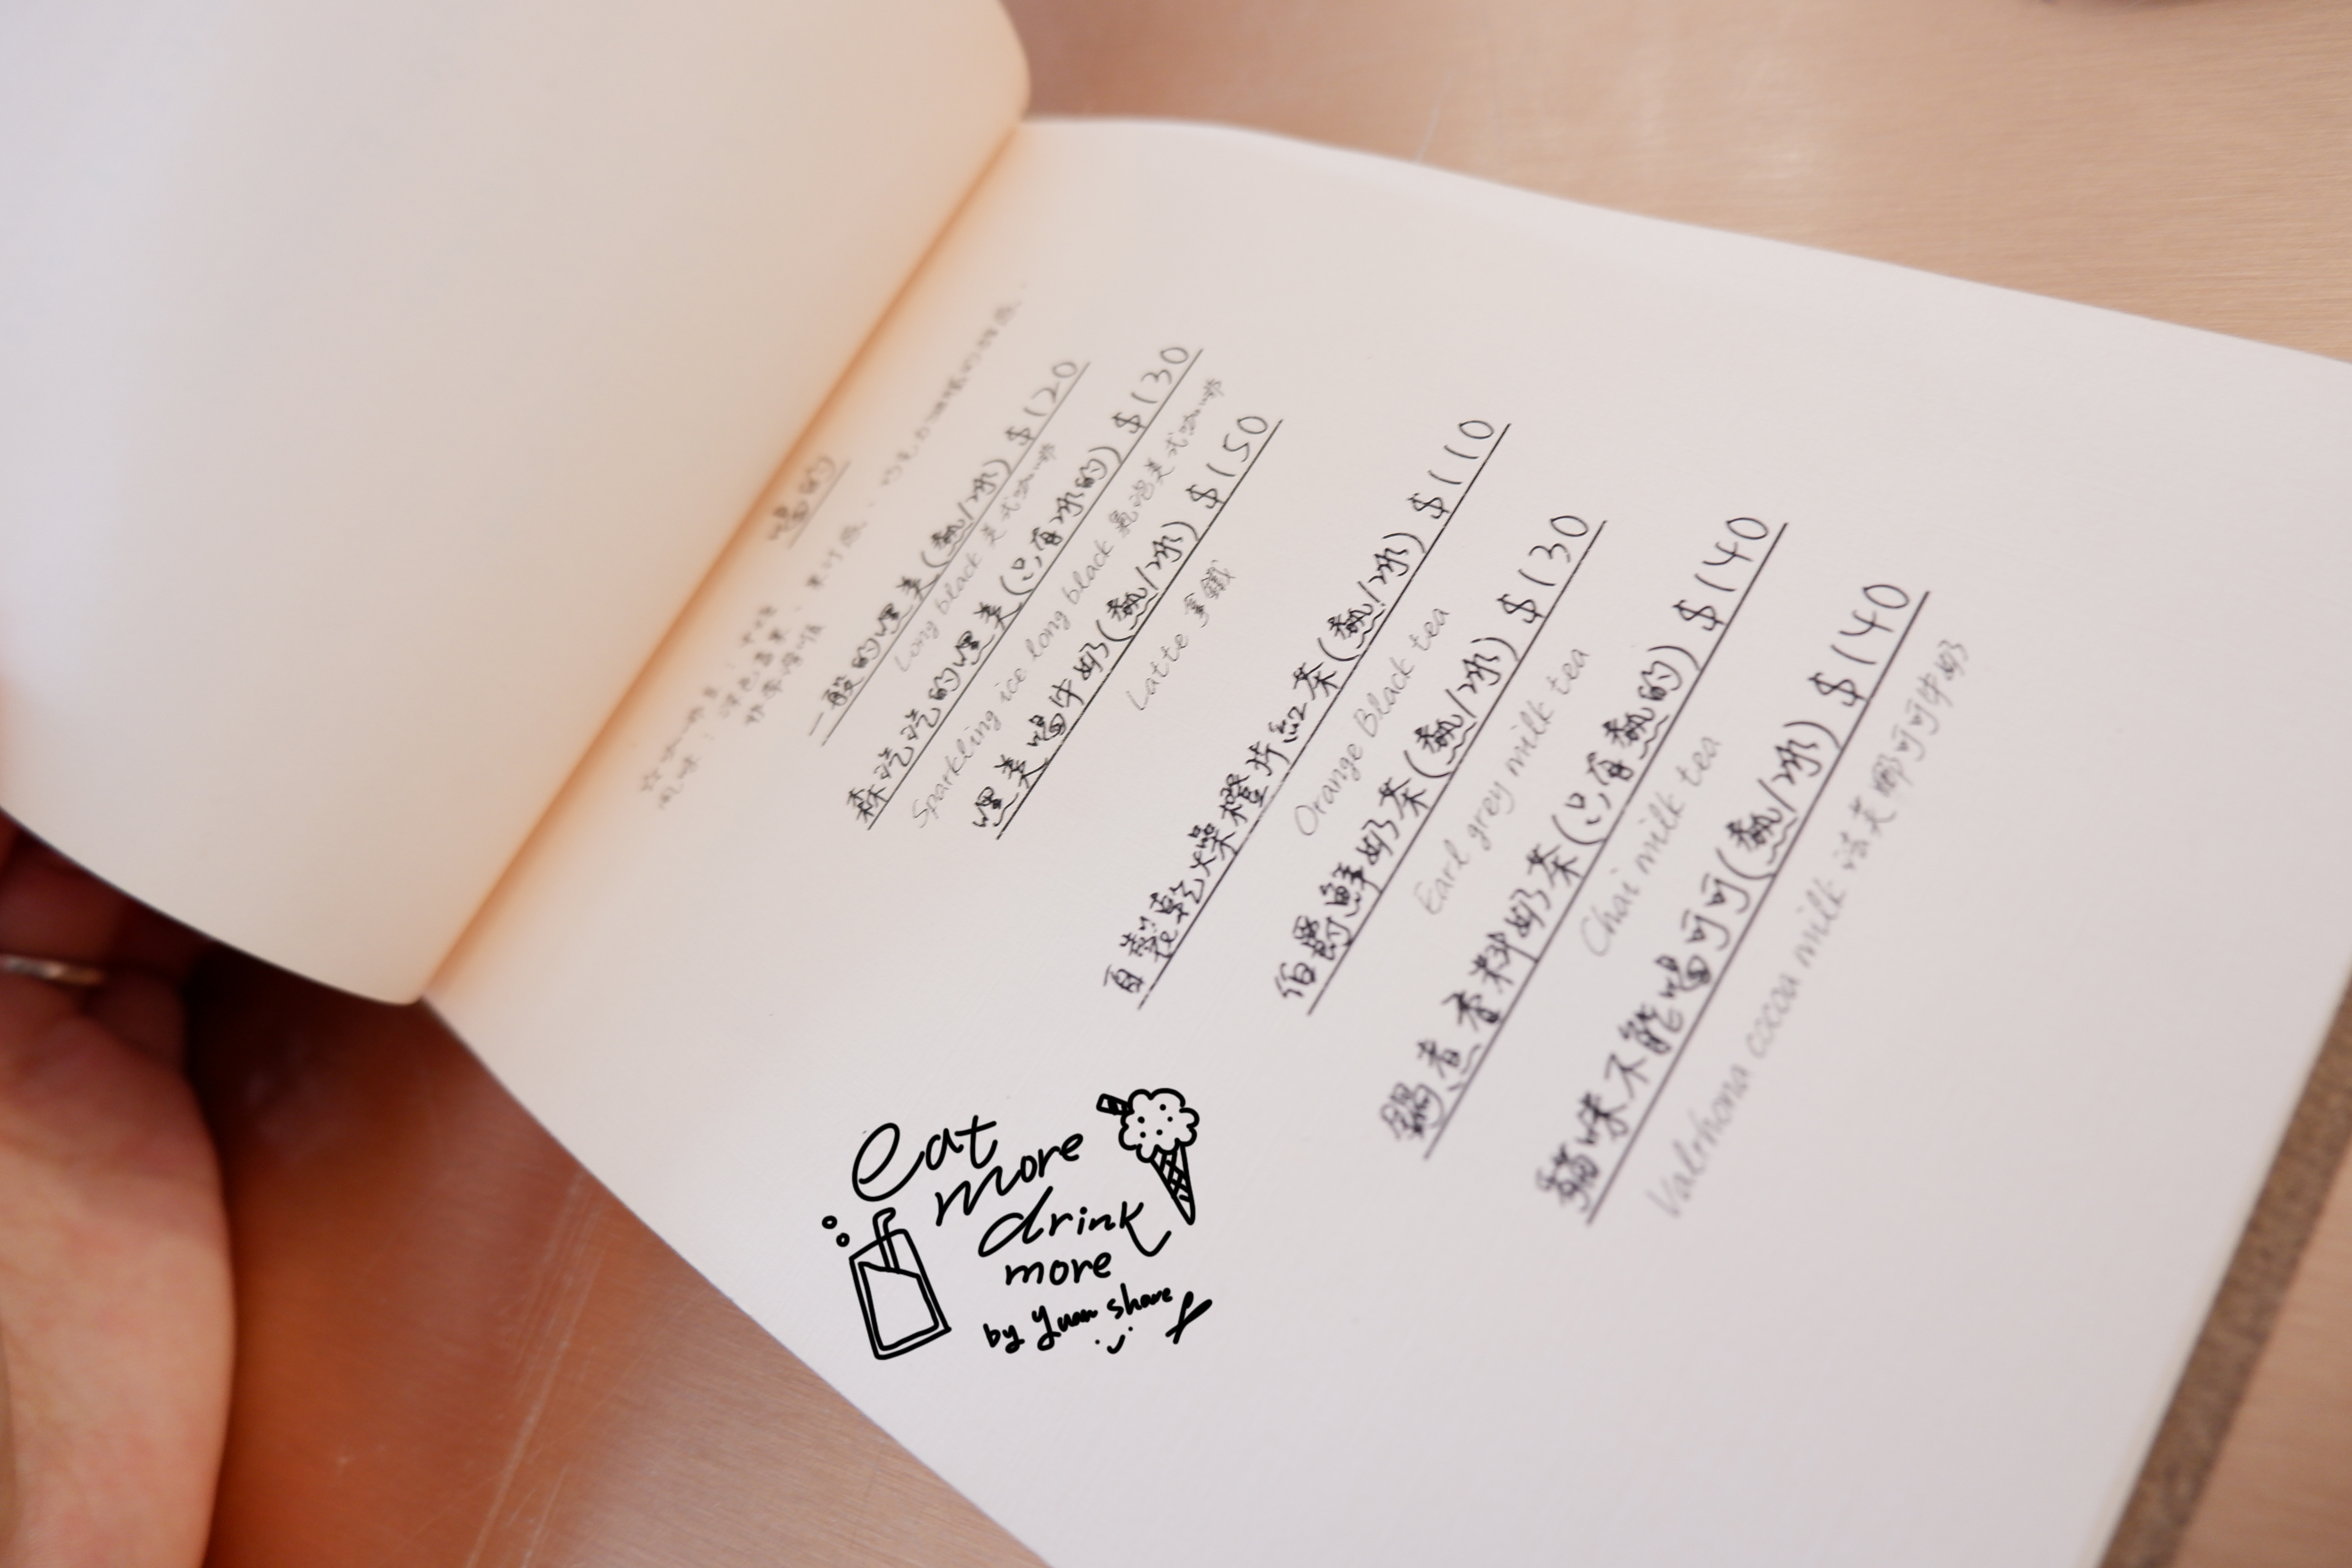 喝的
一般的嘿美(熱/冰) $120
Long black 美式咖啡
森氣氣的嘿美(只有冰的) $130
Sparkling ice long black 氣泡美式咖啡
嘿美喝牛奶(熱/冰) $150
Latte 拿鐵
自製乾燥橙片紅茶(熱/冰) $110
Orange Black tea
伯爵鮮奶茶(熱/冰) $130
Earl grey milk tea
鍋煮香料奶茶(只有熱的) $140
Chai milk tea
貓咪不能喝可可(熱/冰) $140
Valrhona cocoa milk 法芙娜可可牛奶
eat
more
drink
more
by Yuan share